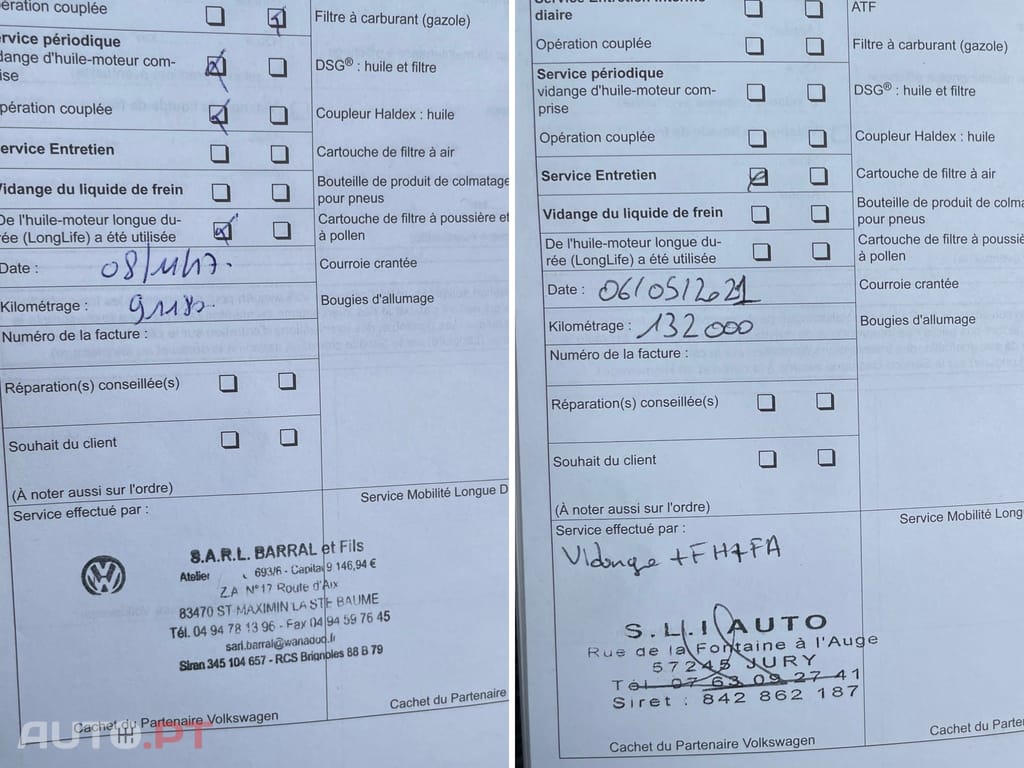 ération couplée
Filtre à carburant (gazole)
rvice périodique
dange d'huile-moteur com-
ise
DSG® : huile et filtre
pération couplée
Coupleur Haldex : huile
ervice Entretien
Cartouche de filtre à air
Vidange du liquide de frein
Bouteille de produit de colmatage
pour pneus
De l'huile-moteur longue du-
rée (LongLife) a été utilisée
Cartouche de filtre à poussière et
à pollen
Date : 08/11/17.
Courroie crantée
Kilométrage : 91180
Bougies d'allumage
Numéro de la facture :
Réparation(s) conseillée(s)
Souhait du client
(À noter aussi sur l'ordre)
Service Mobilité Longue D
Service effectué par :
S.A.R.L. BARRAL et Fils
Atelier 693/6 - Capital 9 146,94 €
Z.A. N°17 Route d'Aix
83470 ST MAXIMIN LA STE BAUME
Tél. 04 94 78 13 96 - Fax 04 94 59 76 45
sarl.barral@wanadoo.fr
Siren 345 104 657 - RCS Brignoles 88 B 79
Cachet du Partenaire Volkswagen
Cachet du Partenaire
AUTO.PT
diaire
ATF
Opération couplée
Filtre à carburant (gazole)
Service périodique
vidange d'huile-moteur com-
prise
DSG® : huile et filtre
Opération couplée
Coupleur Haldex : huile
Service Entretien
Cartouche de filtre à air
Vidange du liquide de frein
Bouteille de produit de colma
pour pneus
De l'huile-moteur longue du-
rée (LongLife) a été utilisée
Cartouche de filtre à poussiè
à pollen
Date : 06/05/2021
Courroie crantée
Kilométrage : 132000
Bougies d'allumage
Numéro de la facture :
Réparation(s) conseillée(s)
Souhait du client
(À noter aussi sur l'ordre)
Service Mobilité Long
Service effectué par :
Vidange + FH + FA
S.L.I AUTO
Rue de la Fontaine à l'Auge
57245 JURY
Tél 07 63 09 27 41
Siret : 842 862 187
Cachet du Partenaire Volkswagen
Cachet du Partena